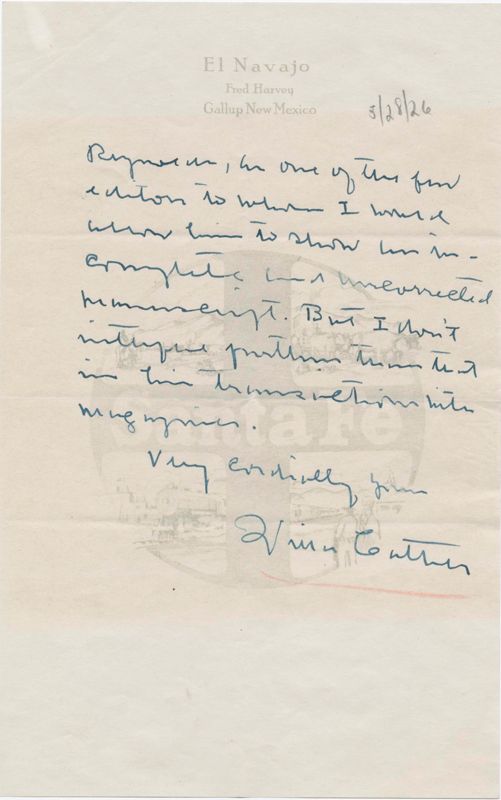 El Navajo
Fred Harvey
Gallup New Mexico
5/28/26
Reynolds, is one of the few
editors to whom I would
allow him to show an in-
complete and uncorrected
manuscript. But I don't
interfere further than that
in his transactions with
magazines.
Santa Fe
Very cordially yours
Willa Cather